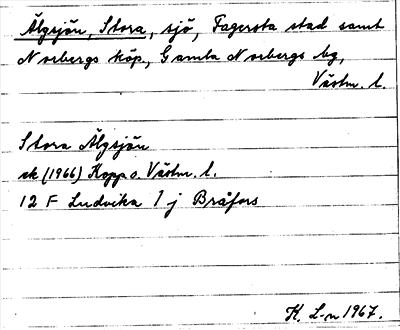 Älgsjön, Stora, sjö, Fagersta stad samt
Norbergs köp., Gamla Norbergs bg,
Västm. l.
Stora Älgsjön
ek (1966) Kopp o. Västm. l.
12 F Ludvika 1 j Bråfors
K. L-n 1967.